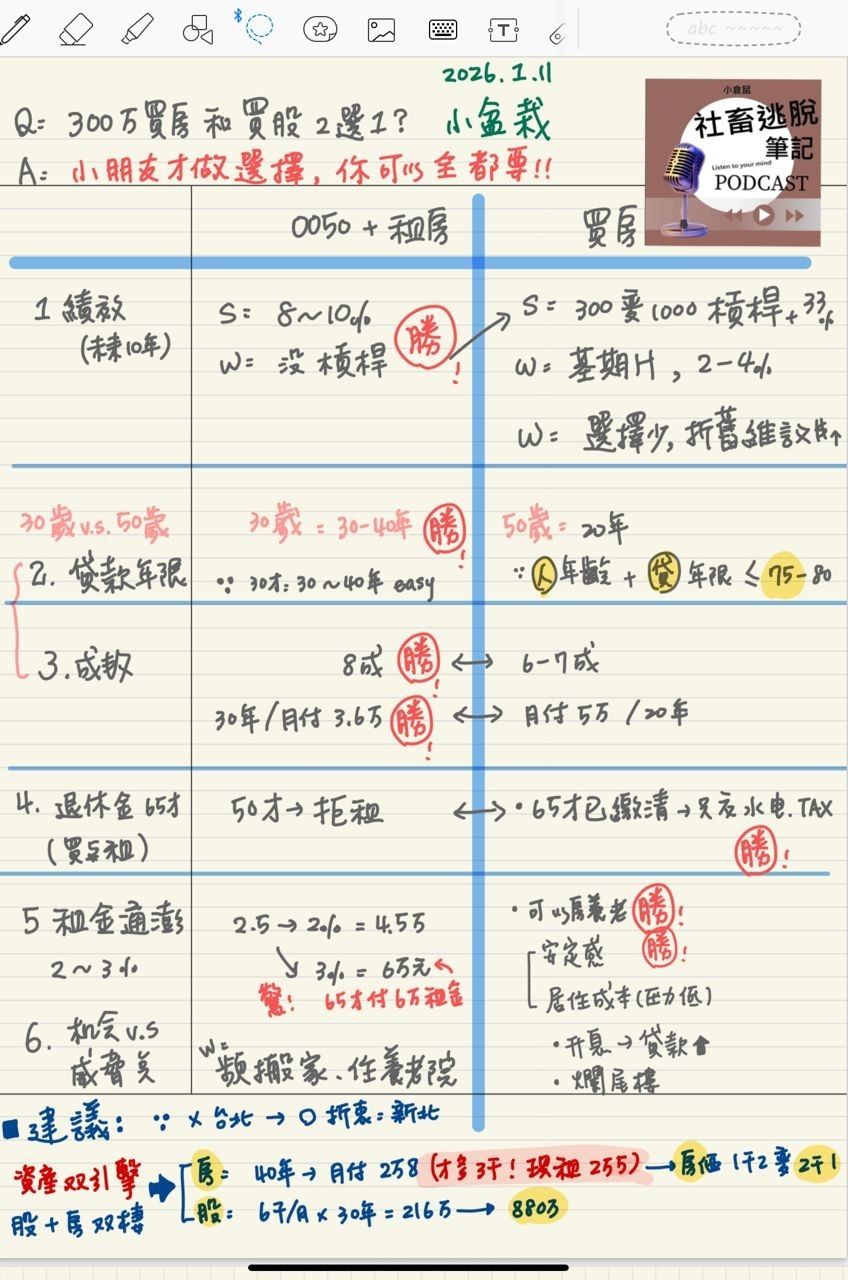 abc ~~~~~
2026.1.11
Q= 300万買房和買股2選1? 小盆栽
A: 小朋友才做選擇, 你可以全都要!!
小倉鼠
社畜逃脫
筆記
Listen to your mind
PODCAST
0050 + 租房 買房
1 績效 S= 8~10% 勝! S= 300要1000 槓桿+33%
(未來10年) W= 沒槓桿 W= 基期H, 2-4%
W= 選擇少, 折舊維護
30歲 v.s. 50歲 30歲 = 30-40年 勝! 50歲= 20年
2. 貸款年限 ∵ 30才: 30~40年 easy ∵ 人年齡 + 貸年限 ≤ 75-80
3. 成數 8成 勝! ↔ 6-7成
30年/月付 3.6万 勝! ↔ 月付 5万 /20年
4. 退休金 65才 50才→拒租 ↔ •65才已繳清→只友水电.TAX
(買与租) 勝!
5 租金通澎 2.5→2% = 4.5万 •可以房養老 勝!
2~3% ↘ 3% = 6万元 安定感 勝!
驚! 65才付6万租金 居住成本(压力低)
6. 机会v.s W= •升息→貸款↑
威脅 頻搬家、住養老院 •爛尾樓
■建議: ∵ ×台北 → ○ 折衷=新北
資產双引擎 → 房= 40年→月付 258 (才多3千! 現租 255) → 房価 1千2 要 2千1
股+房双棲 股= 6千/月×30年=216万 → 880万